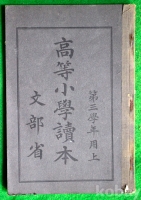 高等小學讀本
第三學年用上
文部省
kobe